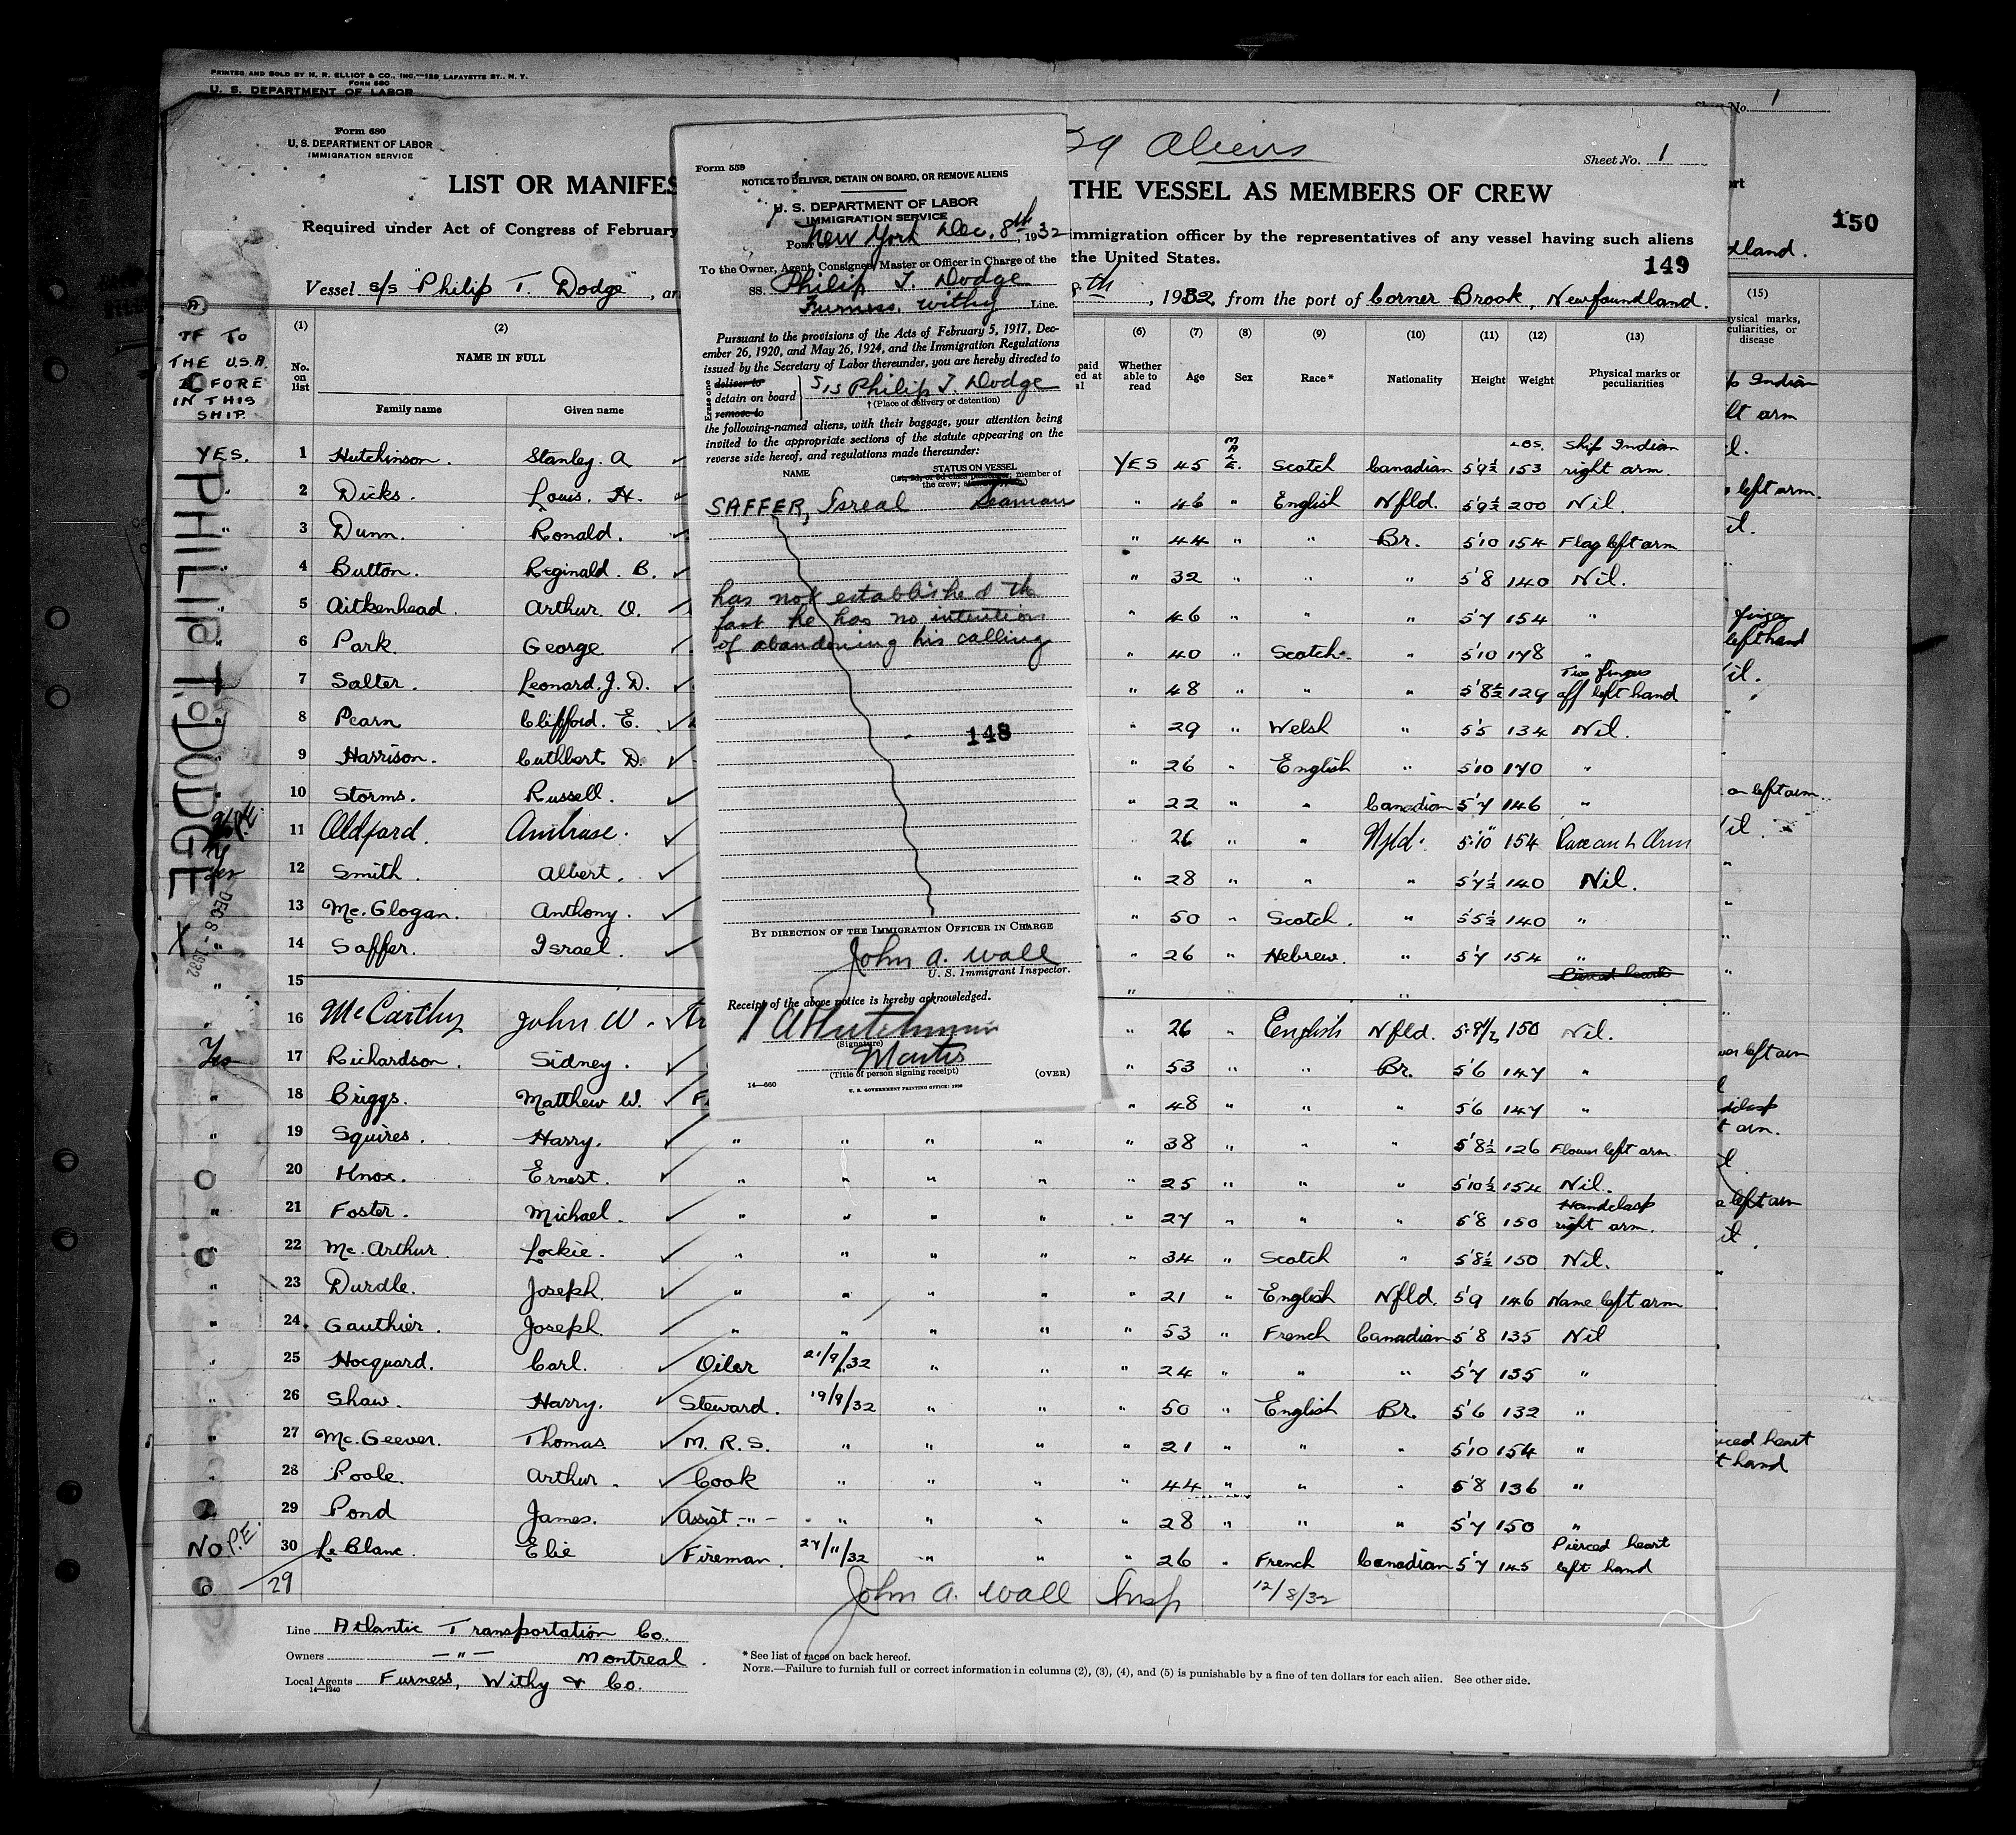 PRINTED AND SOLD BY N. R. ELLIOT & CO., INC.—129 LAFAYETTE ST., N. Y.
FORM 680
U. S. DEPARTMENT OF LABOR
No. 1
150
Form 680
U. S. DEPARTMENT OF LABOR
IMMIGRATION SERVICE
29 Aliens
Sheet No. 1
LIST OR MANIFES THE VESSEL AS MEMBERS OF CREW
Required under Act of Congress of February immigration officer by the representatives of any vessel having such aliens
the United States.
149
Vessel s/s "Philip T. Dodge", ar 8th, 1932, from the port of Corner Brook, Newfoundland.
THE U.S.A.
IN THIS
SHIP.
PHILIP T. DODGE
DEC 8 - 1932
(1) (2) (6) (7) (8) (9) (10) (11) (12) (13)
No. on list NAME IN FULL Whether able to read Age Sex Race* Nationality Height Weight Physical marks or peculiarities
Family name Given name
YES. 1 Hutchinson. Stanley. A YES 45 MALE. Scotch Canadian 5'9½ LBS. 153 Ship Indian right arm.
" 2 Dicks. Louis. H. " 46 " English Nfld. 5'9½ 200 Nil.
" 3 Dunn. Ronald. " 44 " " Br. 5'10 154 Flag left arm
4 Button. Reginald. B. " 32 " " " 5'8 140 Nil.
5 Aitkenhead. Arthur. O. " 46 " " " 5'7 154 "
6 Park. George " 40 " Scotch. " 5'10 178 "
7 Salter. Leonard. J. D. " 48 " " " 5'8½ 129 Two fingers off left hand
8 Pearn Clifford. E. " 29 " Welsh " 5'5 134 Nil.
9 Harrison. Cuthbert D. " 26 " English " 5'10 170 "
10 Storms. Russell. " 22 " " Canadian 5'7 146 "
11 Oldford. Ambrose. 26 " Nfld. 5'10" 154 Arm
Yes 12 Smith. Albert. " 28 " " " 5'7½ 140 Nil.
13 Mc. Glogan. Anthony. " 50 " Scotch. " 5'5½ 140 "
X 14 Saffer. Israel. " 26 " Hebrew. " 5'7 154 "
" 15 " " " Pierced heart
" 16 McCarthy John W. " 26 " English Nfld. 5'8½ 150 Nil.
Yes 17 Richardson. Sidney. " 53 " " Br. 5'6 147 "
" 18 Briggs. Matthew W. F " 48 " " " 5'6 147 "
" 19 Squires. Harry. " " " " " 38 " " " 5'8½ 126 Flower left arm.
20 Knox. Ernest. " " " " " 25 " " " 5'10½ 154 Nil.
" 21 Foster. Michael. " " " " " 27 " " " 5'8 150 Handclasp right arm.
22 Mc. Arthur Lockie. " " " " " 34 " Scotch " 5'8½ 150 Nil.
" 23 Durdle. Joseph. " " " " " 21 " English Nfld. 5'9 146 Name left arm
" 24 Gauthier. Joseph. " " " " " 53 " French Canadian 5'8 135 Nil
" 25 Hocquard. Carl. Oiler 21/9/32 " " " 24 " " " 5'7 135 "
" 26 Shaw. Harry. Steward. 19/9/32 " " " 50 " English Br. 5'6 132 "
" 27 Mc. Geever. Thomas M. R. S. " " " " 21 " " " 5'10 154 "
" 28 Poole. Arthur. Cook " " " " 44 " " " 5'8 136 "
29 Pond James. Assist -"- " " " " 28 " " " 5'7 150 "
No P.E. 30 Le Blanc. Elie Fireman. 27/11/32 " " " 26 " French Canadian 5'7 145 Pierced heart left hand
29 John A. Wall Insp 12/8/32
Line Atlantic Transportation Co.
Owners —"— Montreal.
Local Agents Furness, Withy & Co.
14—1240
* See list of races on back hereof.
NOTE.—Failure to furnish full or correct information in columns (2), (3), (4), and (5) is punishable by a fine of ten dollars for each alien. See other side.
Form 559
NOTICE TO DELIVER, DETAIN ON BOARD, OR REMOVE ALIENS
U. S. DEPARTMENT OF LABOR
IMMIGRATION SERVICE
Port New York Dec. 8th, 1932
To the Owner, Agent, Consignee, Master or Officer in Charge of the
SS. Philip T. Dodge
Furness, Withy Line.
Pursuant to the provisions of the Acts of February 5, 1917, Dec-
ember 26, 1920, and May 26, 1924, and the Immigration Regulations
issued by the Secretary of Labor thereunder, you are hereby directed to
Erase one
deliver to
detain on board S/S Philip T. Dodge
remove to † (Place of delivery or detention)
the following-named aliens, with their baggage, your attention being
invited to the appropriate sections of the statute appearing on the
reverse side hereof, and regulations made thereunder:
NAME STATUS ON VESSEL
(1st, 2d, or 3d class passenger, member of
the crew,
SAFFER, Isreal Seaman
has not established the
fact he has no intention
of abandoning his calling
148
BY DIRECTION OF THE IMMIGRATION OFFICER IN CHARGE
John A. Wall
U. S. Immigrant Inspector.
Receipt of the above notice is hereby acknowledged.
(Signature)
(Title of person signing receipt)
14—660
(OVER)
U. S. GOVERNMENT PRINTING OFFICE: 1930
dland.
(15)
ysical marks,
culiarities, or
disease
Indian
lt arm
left arm.
finger
left hand
left arm
left arm
t arm.
left arm
rced heart
t hand